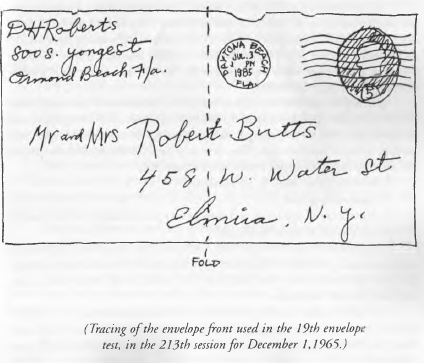 DHRoberts
800 s. yongest
Ormond Beach Fla.
DAYTONA BEACH
JUL. 3
PM
1965
FLA.
5
Mr and Mrs Robert Butts
458 W. Water St
Elmira, N. Y.
FOLD
(Tracing of the envelope front used in the 19th envelope
test, in the 213th session for December 1,1965.)